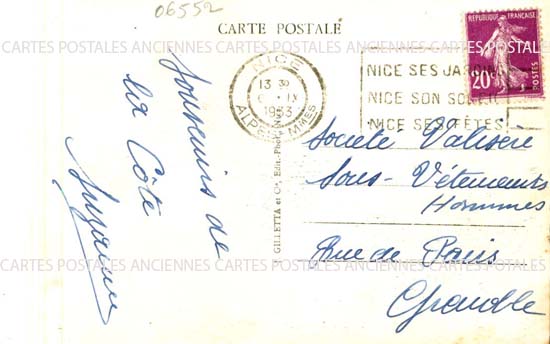 06552
CARTE POSTALE
CARTES POSTALES ANCIENNES CARTES POSTALES ANCIENNES CARTES POSTALES
RÉPUBLIQUE FRANÇAISE
20c
POSTES
NICE
13 30
6 IX
1933
ALPES MMES
NICE SES JARDINS
NICE SON SOLEIL
NICE SES FÊTES
Souvenirs de
la Côte
Suzanne
GILLETTA et Cie, Edit.-Phot. NICE
Societé Valisère
Sous-Vêtements
Hommes
Rue de Paris
Grenoble
CARTES POSTALES ANCIENNES CARTES POSTALES ANCIENNES CARTES POSTALES